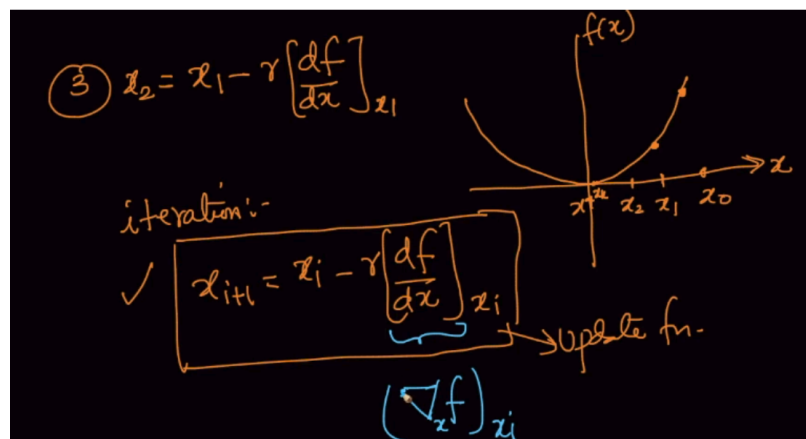 ③ x₂ = x₁ - r [df/dx]ₓ₁
f(x)
x
x* x₂ x₁ x₀
iteration:-
✓ xᵢ₊₁ = xᵢ - r [df/dx] xᵢ
→ Update fn.
(∇ₓf)ₓᵢ